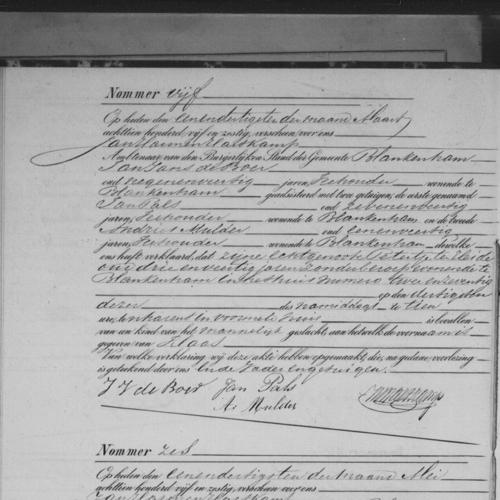 Nommer vijf
Op heden den eenendertigsten der maand Maart
achttien honderd vijf en zestig, verscheen voor ons
Jan Hasselt
Ambtenaar van den Burgerlijken Stand der Gemeente Blankenham
Jan Jans de Boer
oud negenenveertig jaren, veehouder wonende te
Blankenham geadsisteerd met twee getuigen, de eerste genaamd
Jan Pals oud zesenveertig
jaren, veehouder wonende te Blankenham en de tweede
Andries Mulder oud eenenveertig
jaren, veehouder wonende te Blankenham dewelke
ons heeft verklaard, dat zijne echtgenoote
oud drie en veertig jaren zonder beroep wonende te
Blankenham in het huis numero twee en zeventig
op den dertigsten
dezer des namiddags te tien
ure, ten haren en voormeld huis is bevallen
van een kind van het mannelijk geslacht, aan hetwelk de voornaam is
gegeven van Klaas
Van welke verklaring wij deze akte hebben opgemaakt, die, na gedane voorlezing
is geteekend door ons en de vader en getuigen.
J J de Boer Jan Pals
A. Mulder
Nommer zes
Op heden den eenendertigsten der maand Mei
achttien honderd vijf en zestig, verscheen voor ons